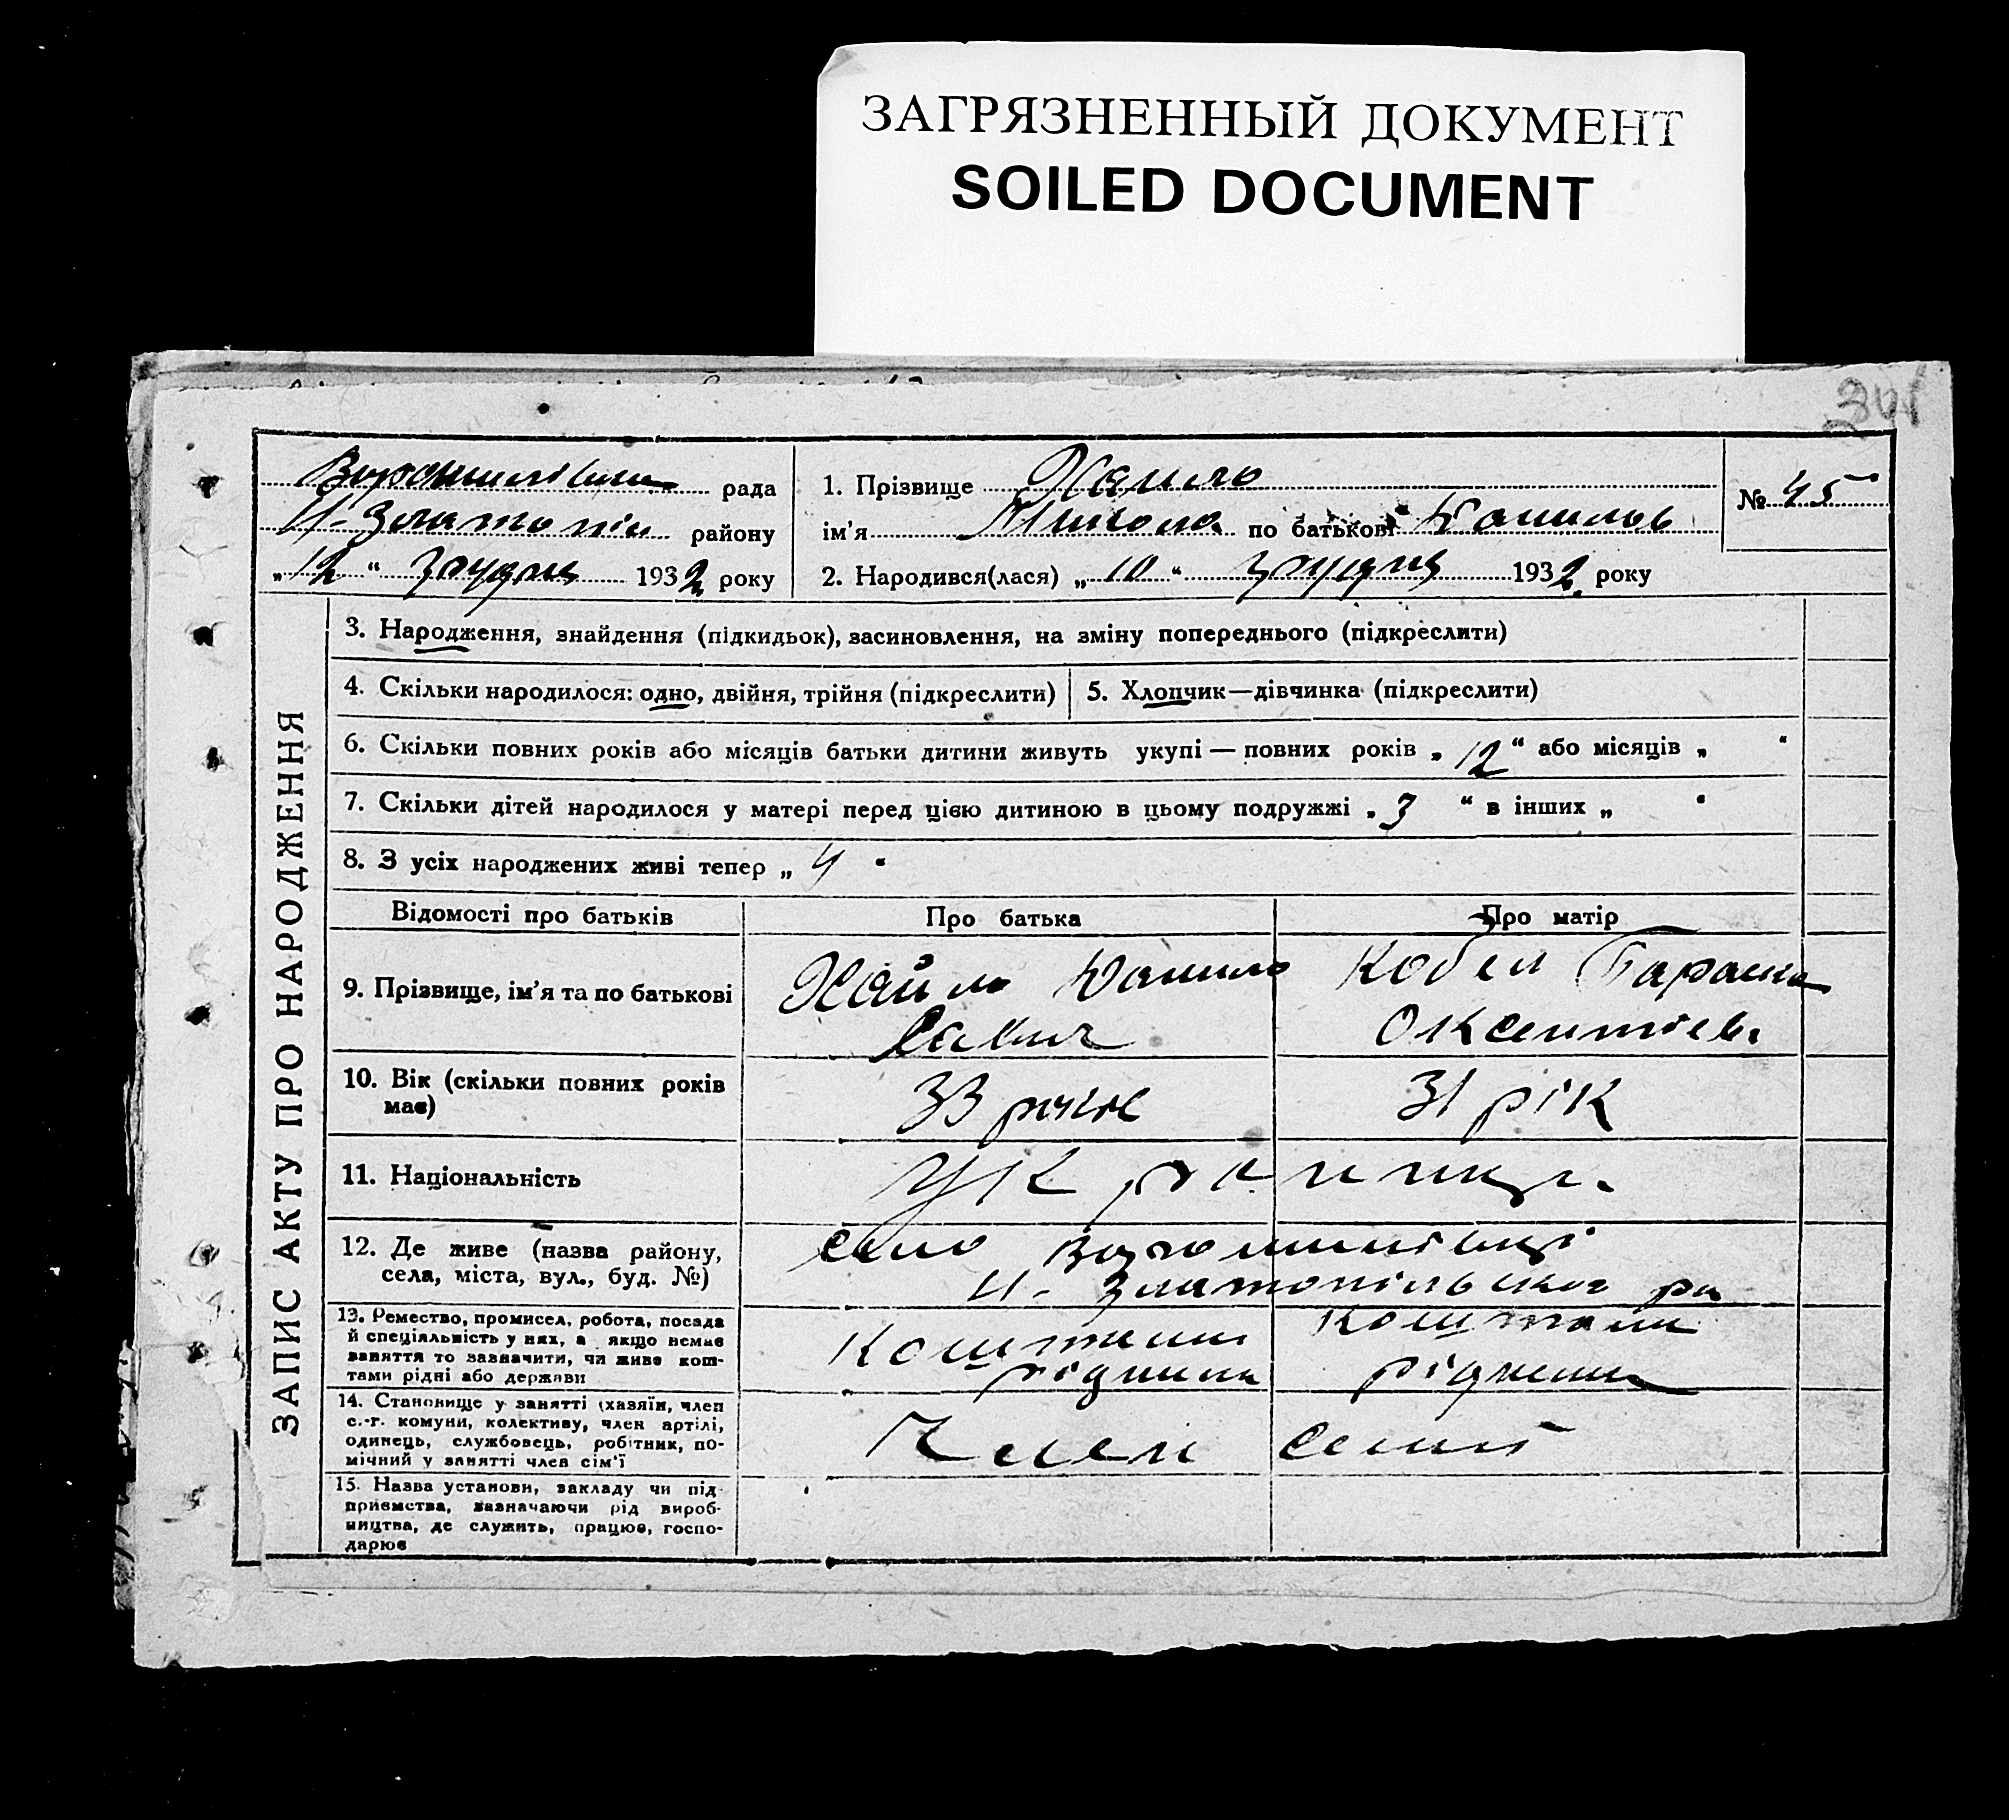 ЗАГРЯЗНЕННЫЙ ДОКУМЕНТ
SOILED DOCUMENT
рада
Н-Златопіл району
„12“ грудня 1932 року
1. Прізвище Хаило
ім'я Микола по батькові Данилов
2. Народився(лася) „10“ грудня 1932 року
№ 45
ЗАПИС АКТУ ПРО НАРОДЖЕННЯ
3. Народження, знайдення (підкидьок), засиновлення, на зміну попереднього (підкреслити)
4. Скільки народилося: одно, двійня, трійня (підкреслити)
5. Хлопчик—дівчинка (підкреслити)
6. Скільки повних років або місяців батьки дитини живуть укупі — повних років „12“ або місяців „ “
7. Скільки дітей народилося у матері перед цією дитиною в цьому подружжі „3 “ в інших „ “
8. З усіх народжених живі тепер „ 4 “
Відомості про батьків
Про батька
Про матір
9. Прізвище, ім'я та по батькові
Хайло Данило
Савич
Кобел Параска
Оксентієв.
10. Вік (скільки повних років
має)
33 років
31 рік
11. Національність
Українці.
12. Де живе (назва району,
села, міста, вул., буд. №)
село Ворошилівці
Н-Златопільского ра
13. Ремество, промисел, робота, посада
й спеціальність у них, а якщо немає
заняття то зазначити, чи живе кош-
тами рідні або держави
Коштами
рідними
Коштами
рідними
14. Становище у занятті (хазяїн, член
с.-г. комуни, колективу, член артілі,
одинець, службовець, робітник, по-
мічний у занятті член сім'ї
Член семії
15. Назва установи, закладу чи під-
приємства, зазначаючи рід вироб-
ництва, де служить, працює, госпо-
дарює